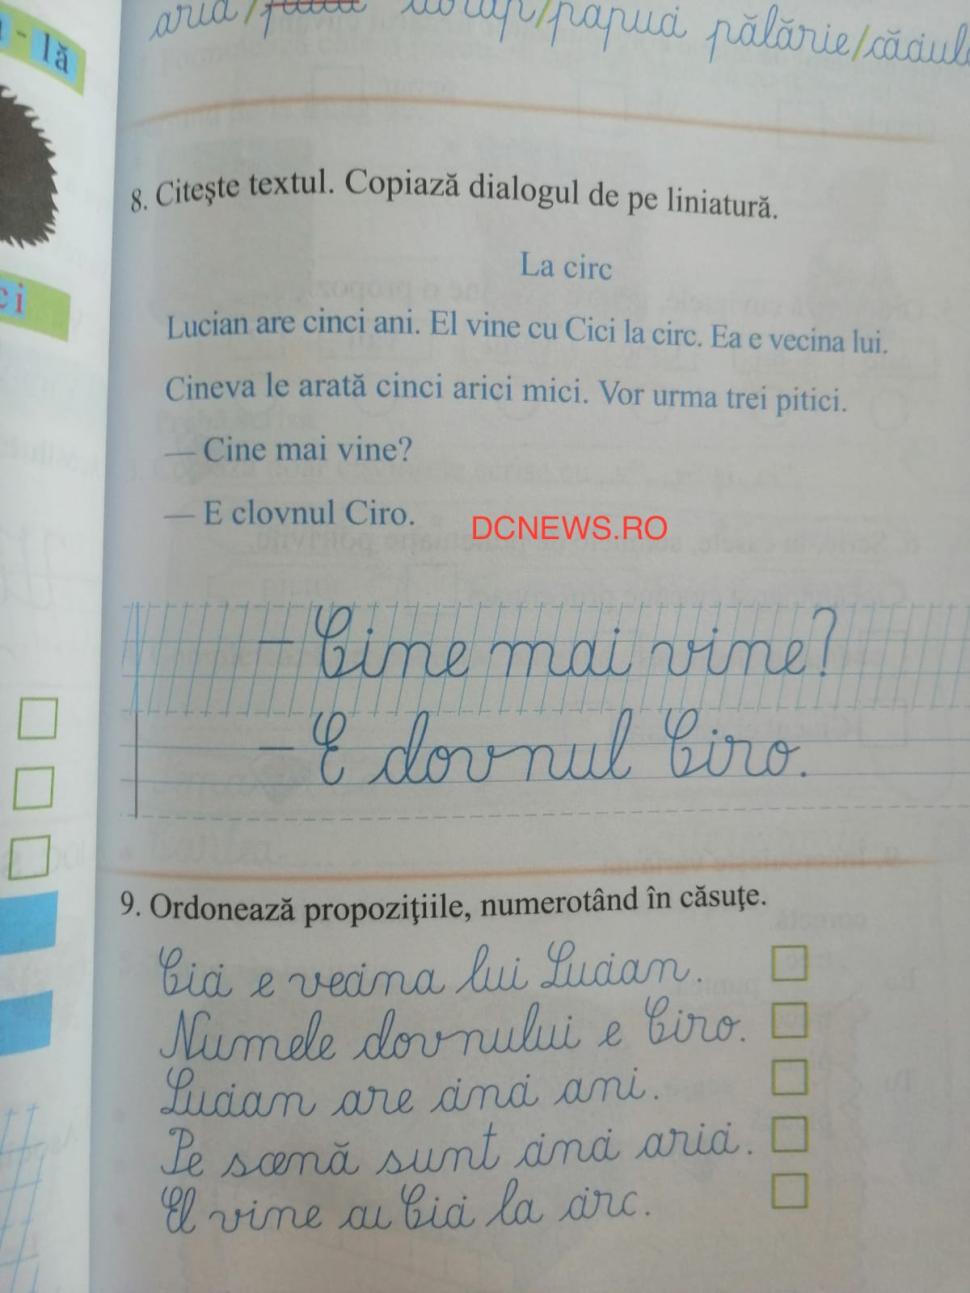 lă
ci
8. Citeşte textul. Copiază dialogul de pe liniatură.
La circ
Lucian are cinci ani. El vine cu Cici la circ. Ea e vecina lui.
Cineva le arată cinci arici mici. Vor urma trei pitici.
— Cine mai vine?
— E clovnul Ciro.
DCNEWS.RO
– Cine mai vine?
– E clovnul Ciro.
9. Ordonează propoziţiile, numerotând în căsuţe.
Cici e vecina lui Lucian.
Numele clovnului e Ciro.
Lucian are cinci ani.
Pe scenă sunt cinci arici.
El vine cu Cici la circ.